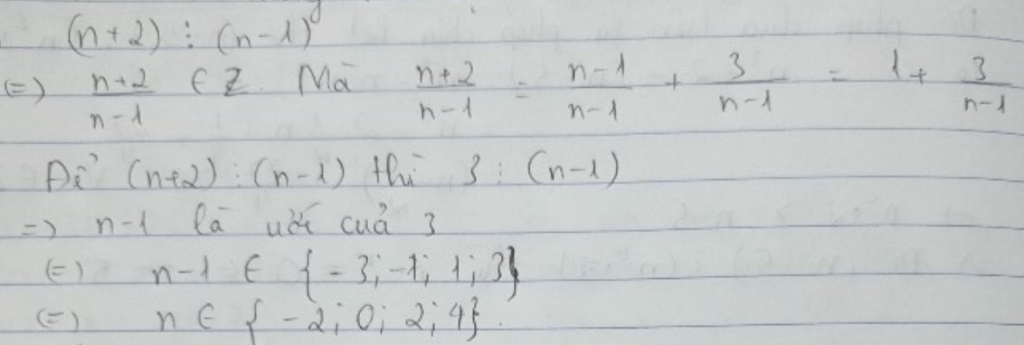 (n+2) ⋮ (n-1)
(=) n+2/n-1 ∈ Z. Mà n+2/n-1 = n-1/n-1 + 3/n-1 = 1 + 3/n-1
Để (n+2) ⋮ (n-1) thì 3 ⋮ (n-1)
=> n-1 là ước của 3
(=) n-1 ∈ {-3; -1; 1; 3}
(=) n ∈ {-2; 0; 2; 4}.